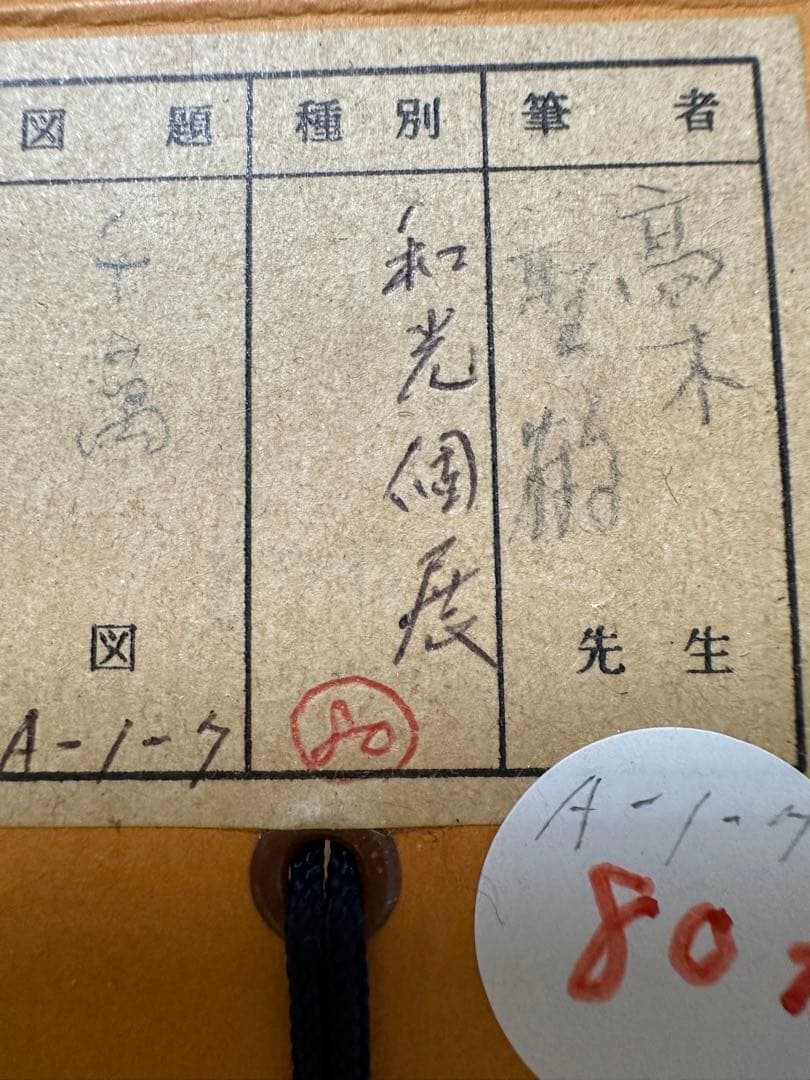 筆者
高木
聖鶴
先生
種別
和光個展
80
図題
千萬
図
A-1-7
A-1-7
80